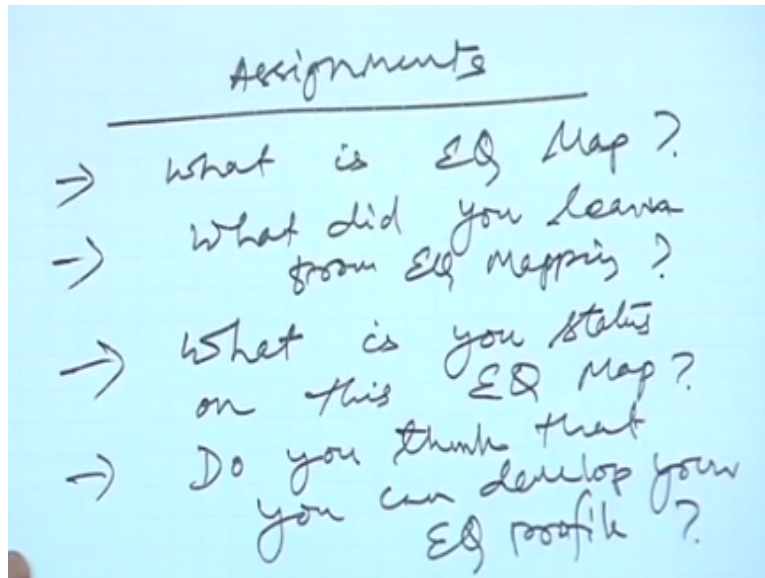 Assignments
→ What is EQ Map?
→ What did you learn
from EQ Mapping?
→ What is you status
on this EQ Map?
→ Do you think that
you can develop your
EQ profile?